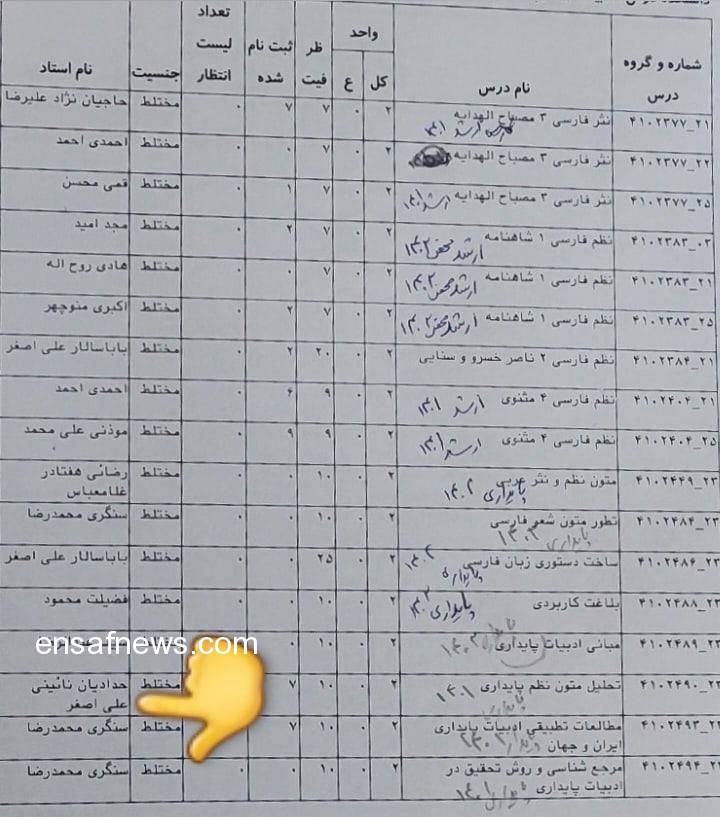 شماره و گروه درس | نام درس | واحد کل | واحد ع | ظرفیت | ثبت نام شده | تعداد لیست انتظار | جنسیت | نام استاد
۴۱۰۲۳۷۷_۲۱ | نثر فارسی ۳ مصباح الهدایه ارشد ۱۴۰۱ | ۲ | ۰ | ۷ | ۷ | ۰ | مختلط | حاجیان نژاد علیرضا
۴۱۰۲۳۷۷_۲۲ | نثر فارسی ۳ مصباح الهدایه | ۲ | ۰ | ۷ | ۰ | ۰ | مختلط | احمدی احمد
۴۱۰۲۳۷۷_۲۵ | نثر فارسی ۳ مصباح الهدایه ارشد ۱۴۰۱ | ۲ | ۰ | ۷ | ۱ | ۰ | مختلط | قمی محسن
۴۱۰۲۳۸۳_۰۳ | نظم فارسی ۱ شاهنامه ارشد محض ۱۴۰۲ | ۲ | ۰ | ۷ | ۲ | ۰ | مختلط | مجد امید
۴۱۰۲۳۸۳_۲۱ | نظم فارسی ۱ شاهنامه ارشد محض ۱۴۰۲ | ۲ | ۰ | ۷ | ۰ | ۰ | مختلط | هادی روح اله
۴۱۰۲۳۸۳_۲۵ | نظم فارسی ۱ شاهنامه ارشد محض ۱۴۰۲ | ۲ | ۰ | ۷ | ۲ | ۰ | مختلط | اکبری منوچهر
۴۱۰۲۳۸۴_۲۱ | نظم فارسی ۲ ناصر خسرو و سنایی | ۲ | ۰ | ۲۰ | ۲ | ۰ | مختلط | باباسالار علی اصغر
۴۱۰۲۴۰۴_۲۱ | نظم فارسی ۴ مثنوی ارشد ۱۴۰۱ | ۲ | ۰ | ۹ | ۶ | ۰ | مختلط | احمدی احمد
۴۱۰۲۴۰۴_۲۵ | نظم فارسی ۴ مثنوی ارشد ۱۴۰۱ | ۲ | ۰ | ۹ | ۹ | ۰ | مختلط | موذنی علی محمد
۴۱۰۲۴۴۹_۲۳ | متون نظم و نثر عربی پایداری ۱۴۰۲ | ۲ | ۰ | ۱۰ | ۰ | ۰ | مختلط | رضائی هفتادر غلامعباس
۴۱۰۲۴۸۴_۲۳ | تطور متون شعر فارسی پایداری ۱۴۰۲ | ۲ | ۰ | ۱۰ | ۰ | ۰ | مختلط | سنگری محمدرضا
۴۱۰۲۴۸۶_۲۳ | ساخت دستوری زبان فارسی پایداری ۱۴۰۲ | ۲ | ۰ | ۲۵ | ۰ | ۰ | مختلط | باباسالار علی اصغر
۴۱۰۲۴۸۸_۲۳ | بلاغت کاربردی پایداری ۱۴۰۲ | ۲ | ۰ | ۱۰ | ۰ | ۰ | مختلط | فضیلت محمود
۴۱۰۲۴۸۹_۲۳ | مبانی ادبیات پایداری پایداری ۱۴۰۲ | ۲ | ۰ | ۱۰ | ۰
ensafnews.com
۴۱۰۲۴۹۰_۲۳ | تحلیل متون نظم پایداری ۱۴۰۱ پایداری | ۲ | ۰ | ۱۰ | ۷ | مختلط | حدادیان نائینی علی اصغر
۴۱۰۲۴۹۳_۲۳ | مطالعات تطبیقی ادبیات پایداری ایران و جهان | ۲ | ۰ | ۱۰ | ۷ | مختلط | سنگری محمدرضا
۴۱۰۲۴۹۴_۲۳ | مرجع شناسی و روش تحقیق در ادبیات پایداری ۱۴۰۱ | ۲ | ۰ | ۱۰ | ۰ | ۰ | مختلط | سنگری محمدرضا